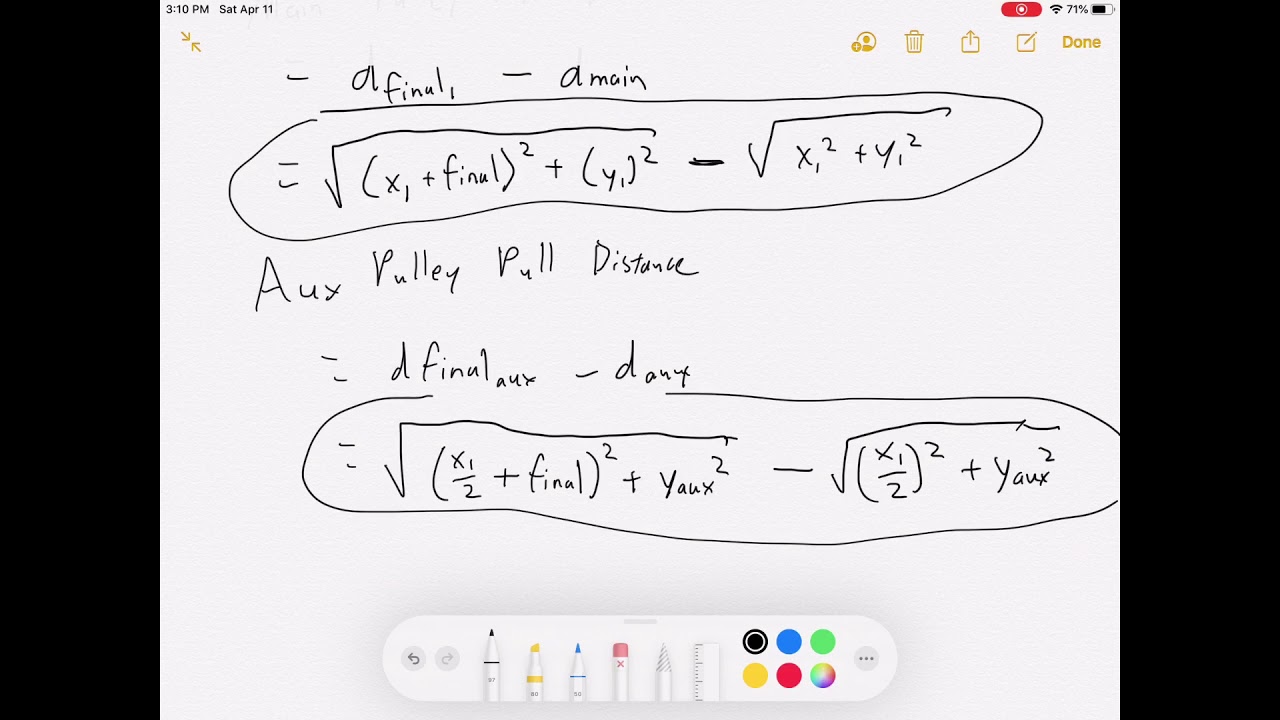 3:10 PM Sat Apr 11 71%
Done
= d_final₁ - d_main
= √((x₁ + final)² + (y₁)²) - √(x₁² + y₁²)
Aux Pulley Pull Distance
= dfinal_aux - d_aux
= √((x₁/2 + final)² + y_aux²) - √((x₁/2)² + y_aux²)
97 80 50